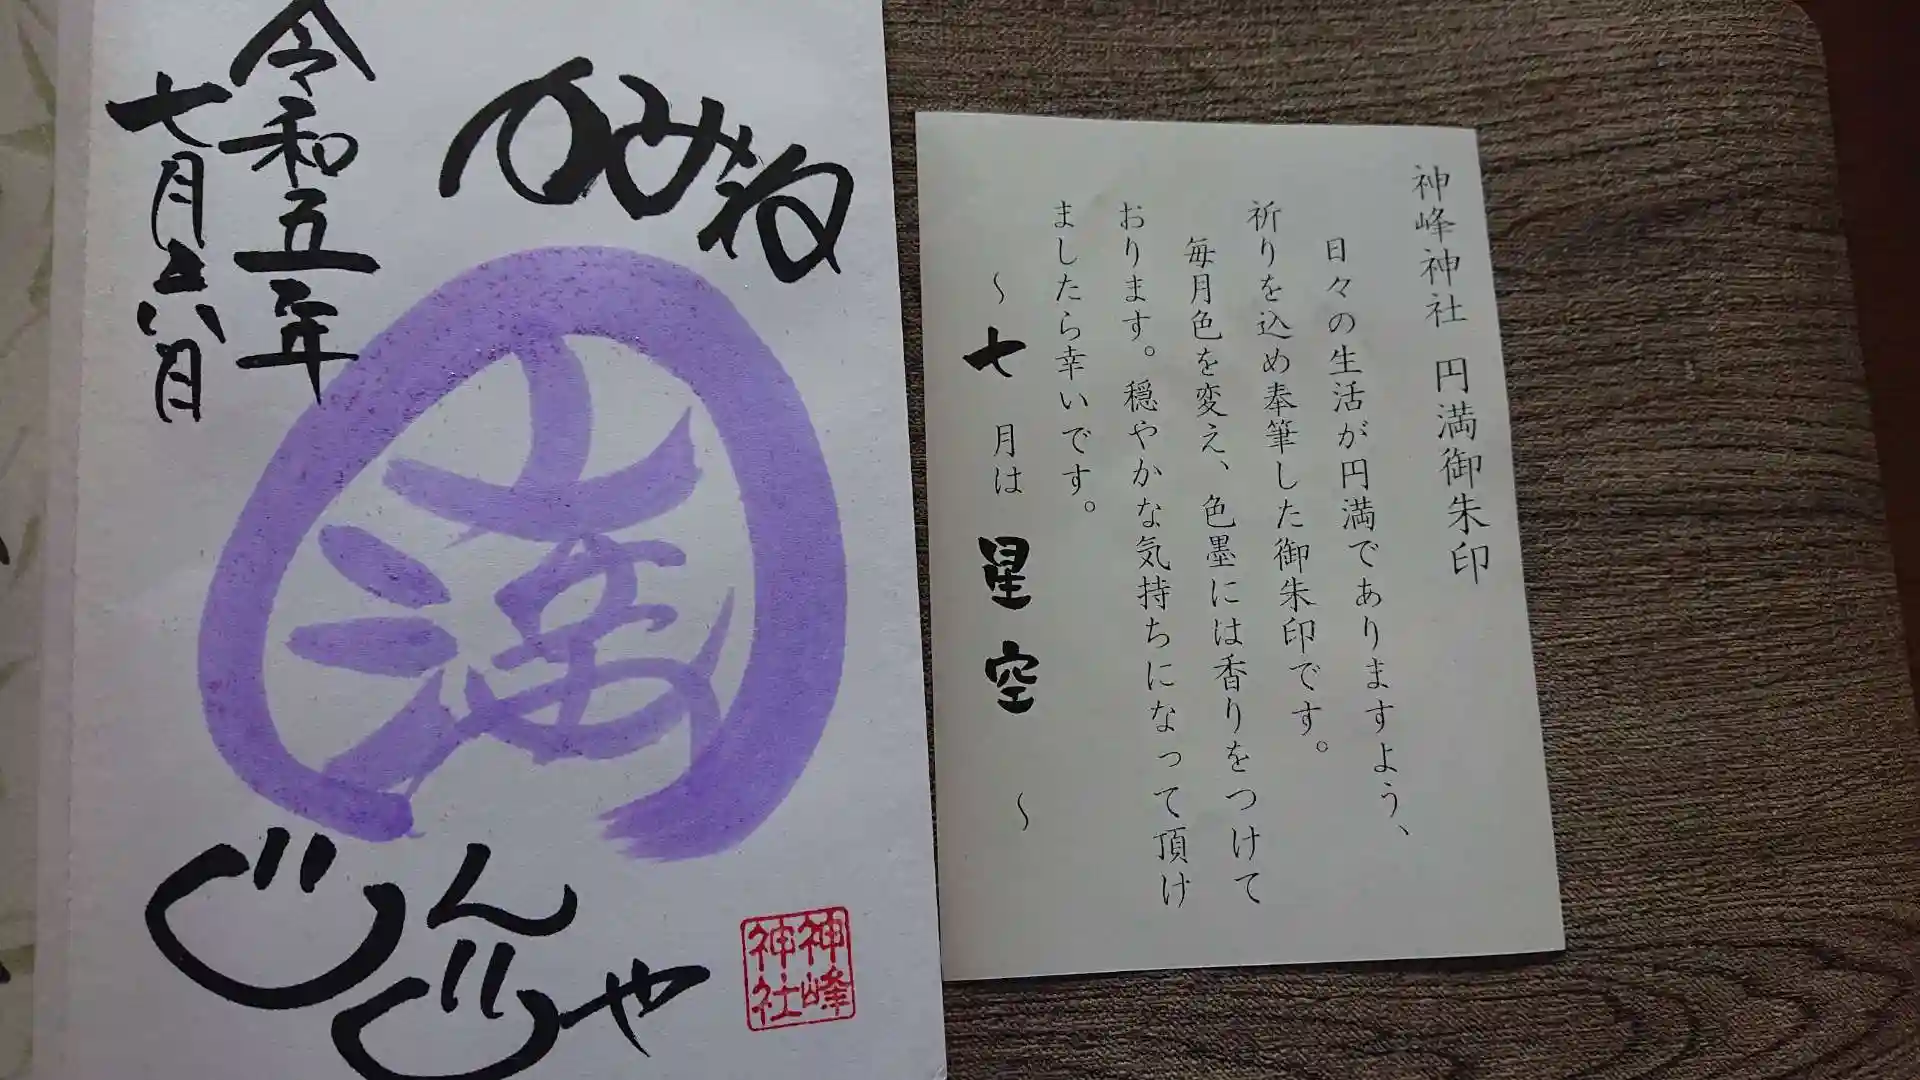 神峰神社 円満御朱印
日々の生活が円満でありますよう、
祈りを込め奉筆した御朱印です。
毎月色を変え、色墨には香りをつけて
おります。穏やかな気持ちになって頂け
ましたら幸いです。
〜七月は星空〜
かみね
満
じんじゃ
令和五年
七月十八日
神峰
神社